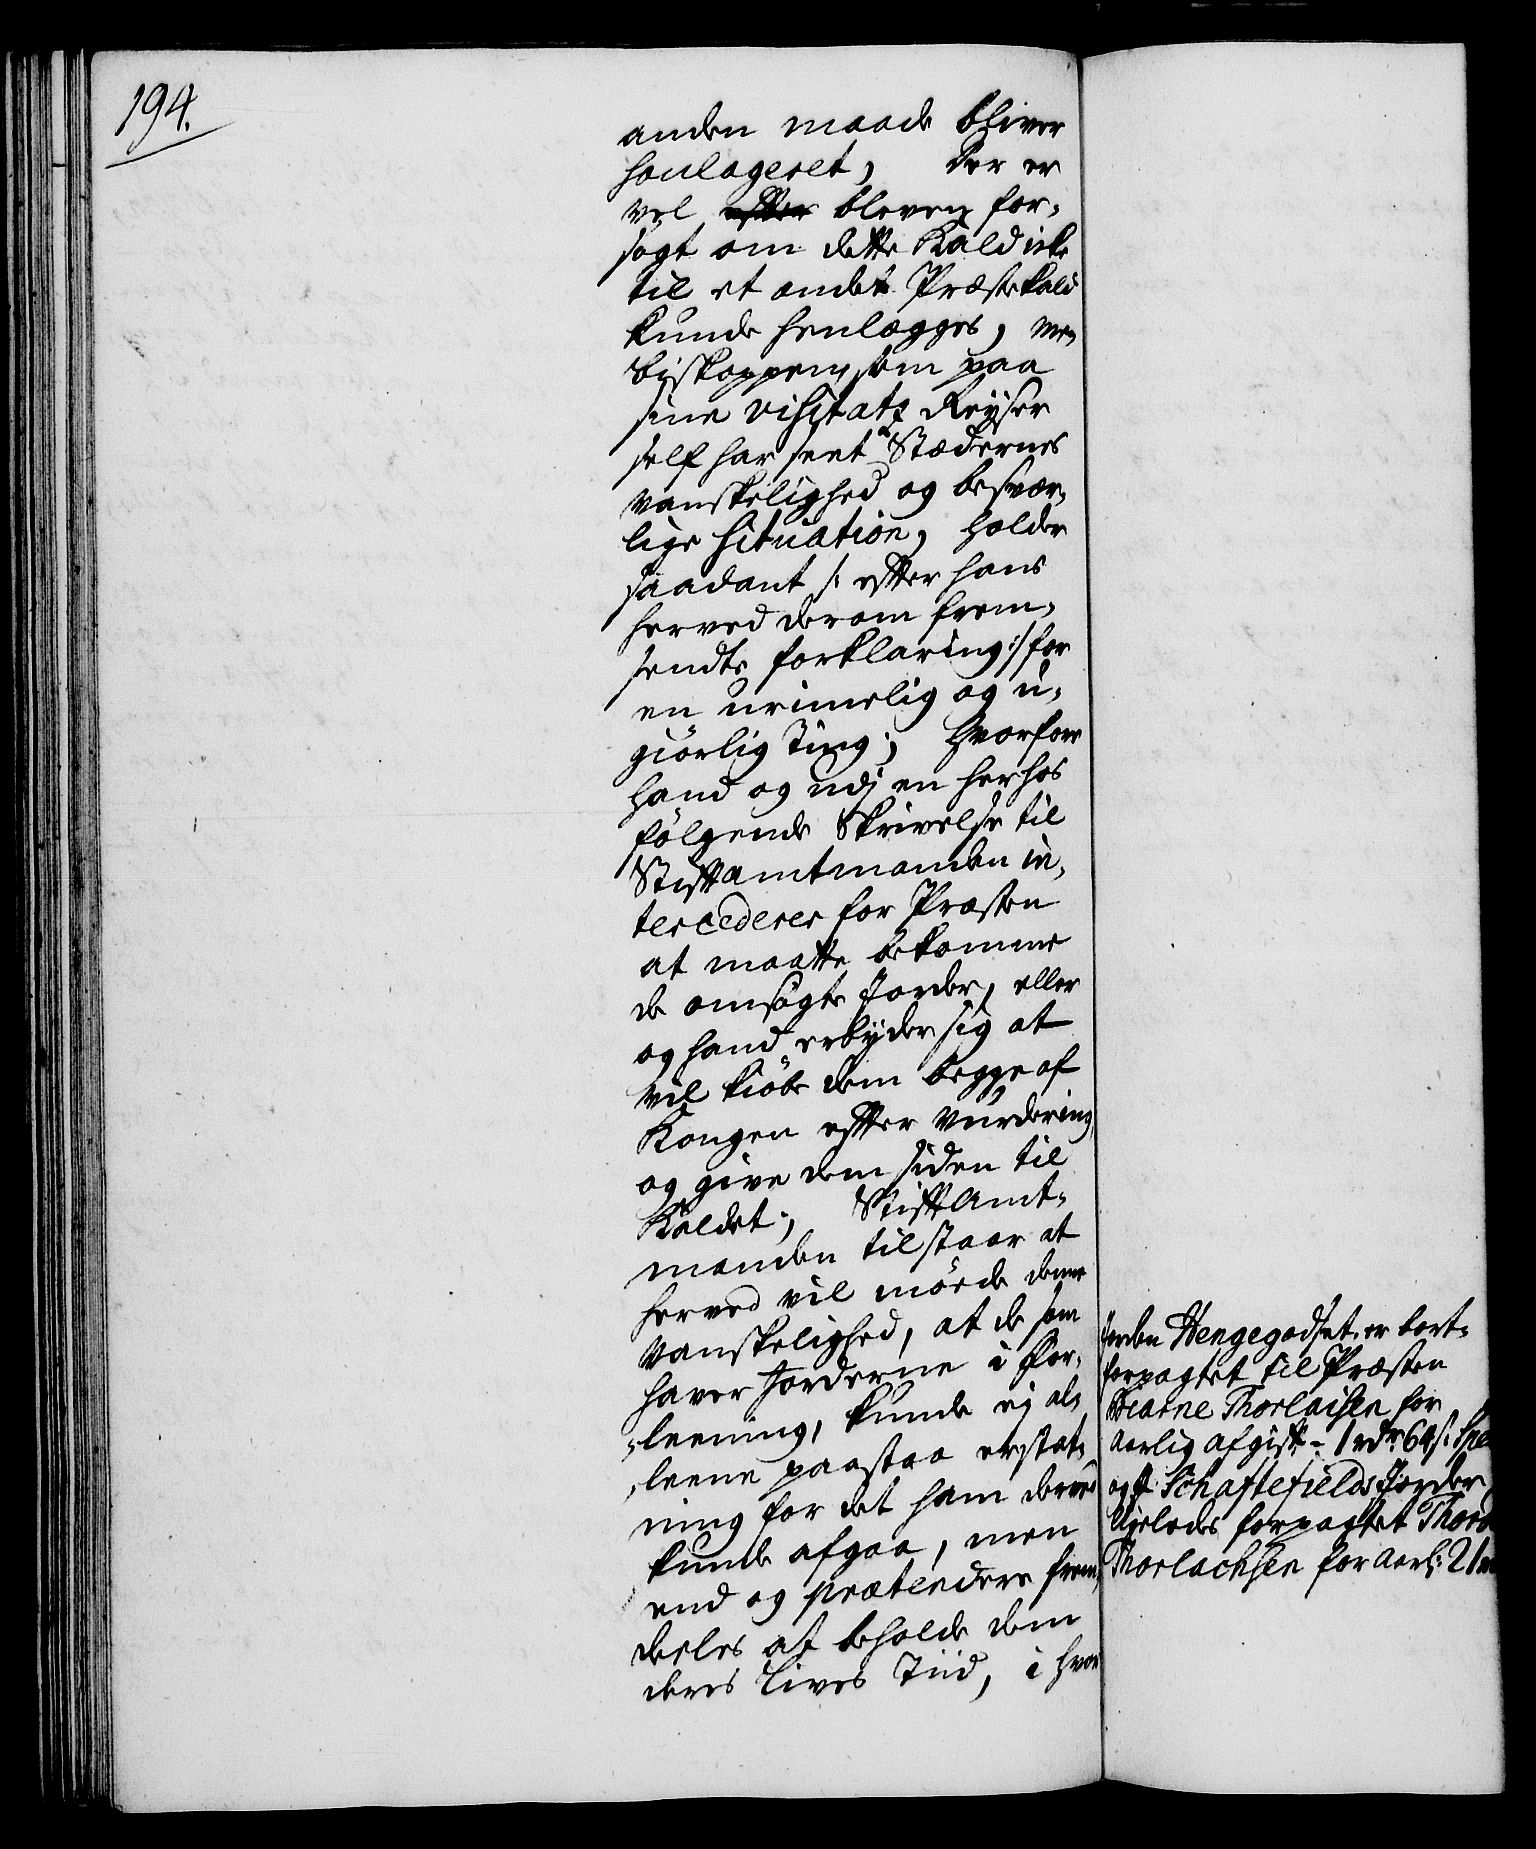 194.
anden maade bliver
soulageret, der er
vel efter bleven for-
søgt om dette Kald icke
til et andet Præstekald
kunde henlægges, men
biskoppen, som paa
sine visitatz Reyser
self har seet Stædernes
vanskelighed og besvær-
lige Situation, holder
saadant /: efter hans
herved derom frem-
sendte forklaring :/ for
en urimelig og u-
giørlig Ting; hvorfore
hand og udj en herhos
følgende Skrivelse til
Stiftamtmanden in-
tercederer for Præsten
at maatte bekomme
de omsøgte Jorder, eller
og hand erbyder sig at
vil kiøbe dem begge af
Kongen efter vurdering
og give dem siden til
Kaldet; StiftAmt-
manden tilstaar at
herved vil møede denne
vanskelighed, at de som
haver Jorderne i For-
leening, kunde ej al-
leene paastaa erstat-
ning for det ham derved
kunde afgaa, men
end og prætendere frem-
deeles at beholde dem
deres Lives Tiid, i hvor
Jorden Hengegodset er bort-
forpagtet til Præsten
Biarne Thorlaisen for
aarlig afgift 1 rdr 64 s: Spe
og Schaftefields Jorder
ligeledes forpagtet Thor
Thorlachsen for aarl: 21